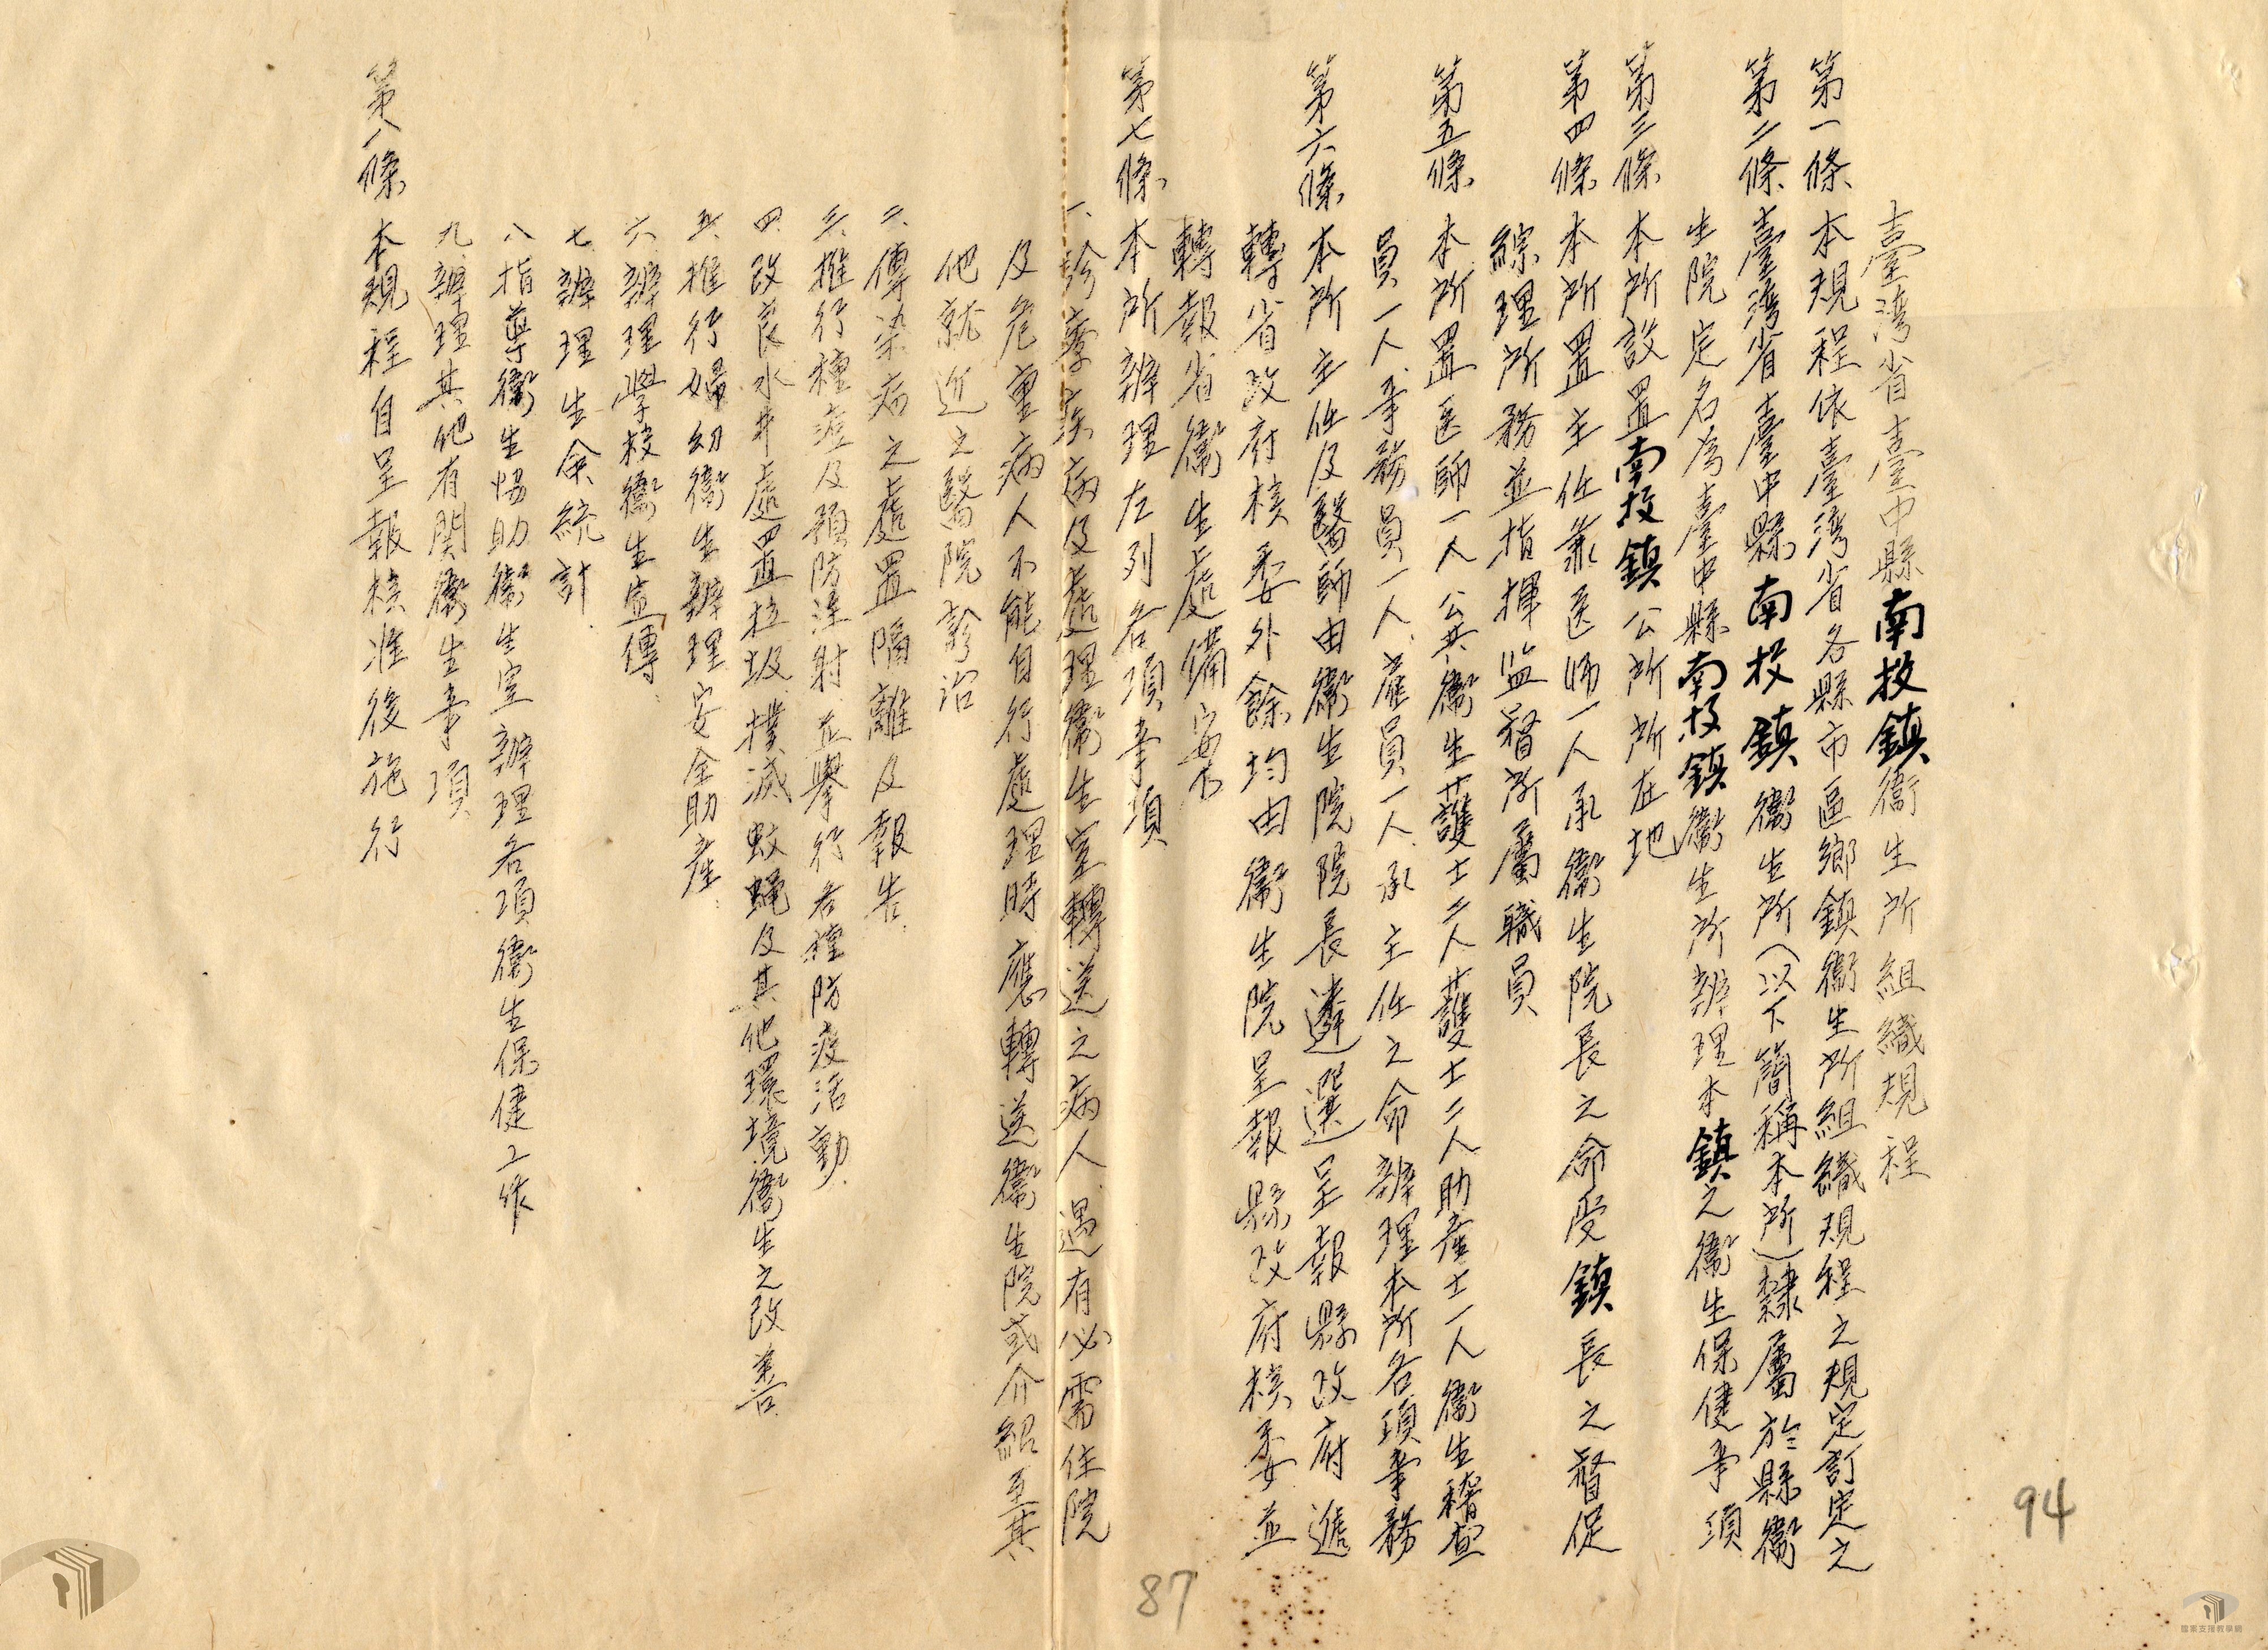 臺灣省臺中縣南投鎮衛生所組織規程
第一條 本規程依臺灣省各縣市區鄉鎮衛生所組織規程之規定訂定之
第二條 臺灣省臺中縣南投鎮衛生所(以下簡稱本所)隸屬於縣衛
生院定名為臺中縣南投鎮衛生所辦理本鎮之衛生保健事項
第三條 本所設置南投鎮公所所在地
第四條 本所置主任兼医师一人承衛生院長之命受鎮長之督促
綜理所務並指揮監督所屬職員
第五條 本所置医師一人公共衛生護士二人護士二人助產士一人衛生稽查
員一人事務員一人雇員一人承主任之命辦理本所各項事務
第六條 本所主任及醫師由衛生院院長遴選呈報縣政府遞
轉省政府核委外餘均由衛生院呈報縣政府核委並
轉報省衛生處備案
第七條 本所辦理左列各項事項
一、診療疾病及處理衛生室轉送之病人遇有必需住院
及危重病人不能自行處理時應轉送衛生院或介紹至其
他就近之醫院診治
二、傳染病之處置隔離及報告.
三、推行種痘及預防注射並舉行各種防疫活動.
四、改良水井處置垃圾撲滅蚊蝇及其他環境衛生之改善.
五、推行婦幼衛生辦理安全助產.
六、辦理學校衛生宣傳.
七、辦理生命統計.
八、指導衛生協助衛生室辦理各項衛生保健工作
九、辦理其他有関衛生事項
第八條 本規程自呈報核准後施行
94
87
檔案支援教學網